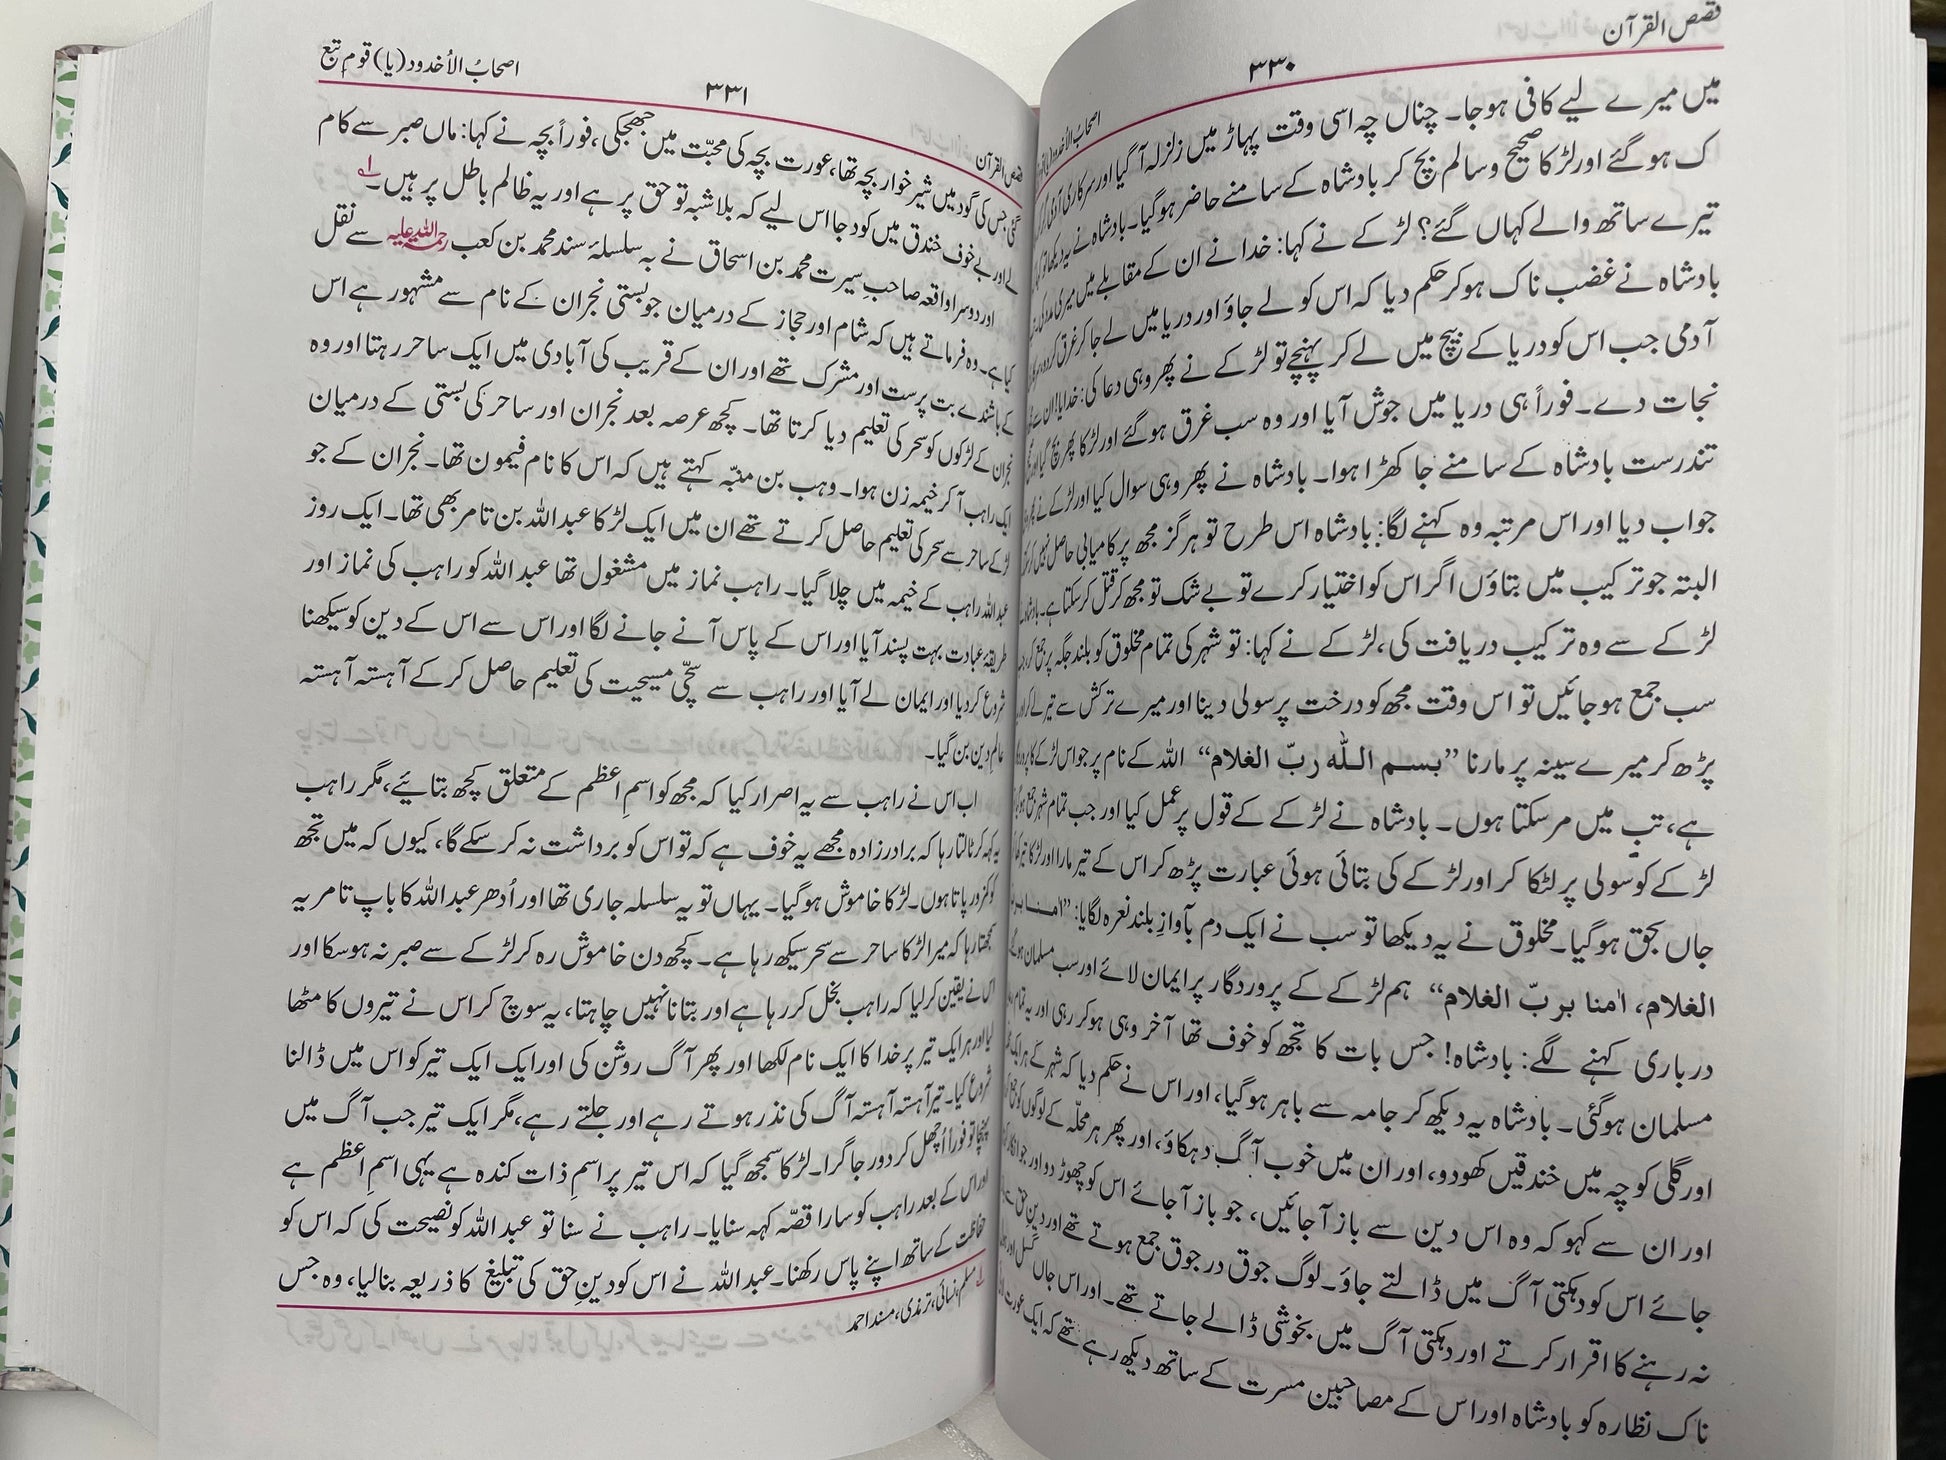 قصص القرآن
۳۳۰
اصحابُ الاُخدود (یا)
میں میرے لیے کافی ہوجا۔ چناں چہ اسی وقت پہاڑ میں زلزلہ آگیا اور سرکاری آدمی
ک ہوگئے اور لڑکا صحیح وسالم بچ کر بادشاہ کے سامنے حاضر ہوگیا۔ بادشاہ نے یہ دیکھا تو
تیرے ساتھ والے کہاں گئے؟ لڑکے نے کہا: خدا نے ان کے مقابلے میں میری مدد کی
بادشاہ نے غضب ناک ہوکر حکم دیا کہ اس کو لے جاؤ اور دریا میں لے جا کر غرق کردو،
آدمی جب اس کو دریا کے بیچ میں لے کر پہنچے تو لڑکے نے پھر وہی دعا کی: خدایا! ان سے
نجات دے۔ فوراً ہی دریا میں جوش آیا اور وہ سب غرق ہوگئے اور لڑکا پھر بچ گیا اور
تندرست بادشاہ کے سامنے جا کھڑا ہوا۔ بادشاہ نے پھر وہی سوال کیا اور لڑکے نے
جواب دیا اور اس مرتبہ وہ کہنے لگا: بادشاہ اس طرح تو ہرگز مجھ پر کامیابی حاصل نہیں
البتہ جو ترکیب میں بتاؤں اگر اس کو اختیار کرے تو بے شک تو مجھ کر قتل کرسکتا ہے۔
لڑکے سے وہ ترکیب دریافت کی، لڑکے نے کہا: تو شہر کی تمام مخلوق کو بلند جگہ پر جمع کر،
سب جمع ہوجائیں تو اس وقت مجھ کو درخت پر سولی دینا اور میرے ترکش سے تیر لے کر
پڑھ کر میرے سینہ پر مارنا ”بسم اللہ ربّ الغلام“ اللہ کے نام پر جو اس لڑکے کا
ہے، تب میں مرسکتا ہوں۔ بادشاہ نے لڑکے کے قول پر عمل کیا اور جب تمام شہر جمع
لڑکے کو سولی پر لٹکا کر اور لڑکے کی بتائی ہوئی عبارت پڑھ کر اس کے تیر مارا اور لڑکا
جاں بحق ہوگیا۔ مخلوق نے یہ دیکھا تو سب نے ایک دم بآوازِ بلند نعرہ لگایا: ”اٰمنا
الغلام، اٰمنا بربّ الغلام“ ہم لڑکے کے پروردگار پر ایمان لائے اور سب مسلمان
درباری کہنے لگے: بادشاہ! جس بات کا تجھ کو خوف تھا آخر وہی ہوکر رہی اور یہ تمام
مسلمان ہوگئی۔ بادشاہ یہ دیکھ کر جامہ سے باہر ہوگیا، اور اس نے حکم دیا کہ شہر کے ہر ایک
اور گلی کوچہ میں خندقیں کھودو، اور ان میں خوب آگ دہکاؤ، اور پھر ہر محلّہ کے لوگوں کو
اور ان سے کہو کہ وہ اس دین سے باز آجائیں، جو باز آجائے اس کو چھوڑ دو اور جو
جائے اس کو دہکتی آگ میں ڈالتے جاؤ۔ لوگ جوق در جوق جمع ہوتے تھے اور دینِ حق
نہ رہنے کا اقرار کرتے اور دہکتی آگ میں بخوشی ڈالے جاتے تھے۔ اور اس جاں گسل
ناک نظارہ کو بادشاہ اور اس کے مصاحبین مسرت کے ساتھ دیکھ رہے تھے کہ ایک عورت
قصص القرآن
۳۳۱
اصحابُ الاُخدود (یا) قومِ تبع
گئی جس کی گود میں شیرخوار بچہ تھا، عورت بچہ کی محبّت میں جھجکی، فوراً بچہ نے کہا: ماں صبر سے کام
لے اور بے خوف خندق میں کود جا اس لیے کہ بلاشبہ تو حق پر ہے اور یہ ظالم باطل پر ہیں۔ لہ
اور دوسرا واقعہ صاحبِ سیرت محمد بن اسحاق نے بہ سلسلۂ سند محمد بن کعب رحمۃ اللہ علیہ سے نقل
کیا ہے۔ وہ فرماتے ہیں کہ شام اور حجاز کے درمیان جو بستی نجران کے نام سے مشہور ہے اس
کے باشندے بت پرست اور مشرک تھے اور ان کے قریب کی آبادی میں ایک ساحر رہتا اور وہ
نجران کے لڑکوں کو سحر کی تعلیم دیا کرتا تھا۔ کچھ عرصہ بعد نجران اور ساحر کی بستی کے درمیان
ایک راہب آ کر خیمہ زن ہوا۔ وہب بن منبّہ کہتے ہیں کہ اس کا نام فیمون تھا۔ نجران کے جو
لڑکے ساحر سے سحر کی تعلیم حاصل کرتے تھے ان میں ایک لڑکا عبداللہ بن تامر بھی تھا۔ ایک روز
عبداللہ راہب کے خیمہ میں چلا گیا۔ راہب نماز میں مشغول تھا عبداللہ کو راہب کی نماز اور
طریقۂ عبادت بہت پسند آیا اور اس کے پاس آنے جانے لگا اور اس سے اس کے دین کو سیکھنا
شروع کردیا اور ایمان لے آیا اور راہب سے سچّی مسیحیت کی تعلیم حاصل کرکے آہستہ آہستہ
عالمِ دین بن گیا۔
اب اس نے راہب سے یہ اصرار کیا کہ مجھ کو اسمِ اعظم کے متعلق کچھ بتائیے، مگر راہب
یہ کہہ کر ٹالتا رہا کہ برادرزادہ مجھے یہ خوف ہے کہ تو اس کو برداشت نہ کرسکے گا، کیوں کہ میں تجھ
کو کمزور پاتا ہوں۔ لڑکا خاموش ہوگیا۔ یہاں تو یہ سلسلہ جاری تھا اور اُدھر عبداللہ کا باپ تامر یہ
سمجھتا رہا کہ میرا لڑکا ساحر سے سحر سیکھ رہا ہے۔ کچھ دن خاموش رہ کر لڑکے سے صبر نہ ہوسکا اور
اس نے یقین کرلیا کہ راہب بخل کررہا ہے اور بتانا نہیں چاہتا، یہ سوچ کر اس نے تیروں کا مٹھا
لیا اور ہر ایک تیر پر خدا کا ایک نام لکھا اور پھر آگ روشن کی اور ایک ایک تیر کو اس میں ڈالنا
شروع کیا۔ تیر آہستہ آہستہ آگ کی نذر ہوتے رہے اور جلتے رہے، مگر ایک تیر جب آگ میں
پہنچا تو فوراً اُچھل کر دور جاگرا۔ لڑکا سمجھ گیا کہ اس تیر پر اسمِ ذات کندہ ہے یہی اسمِ اعظم ہے
اور اس کے بعد راہب کو سارا قصّہ کہہ سنایا۔ راہب نے سنا تو عبداللہ کو نصیحت کی کہ اس کو
حفاظت کے ساتھ اپنے پاس رکھنا۔ عبداللہ نے اس کو دینِ حق کی تبلیغ کا ذریعہ بنالیا، وہ جس
لہ مسلم، نسائی، ترمذی، مسند احمد